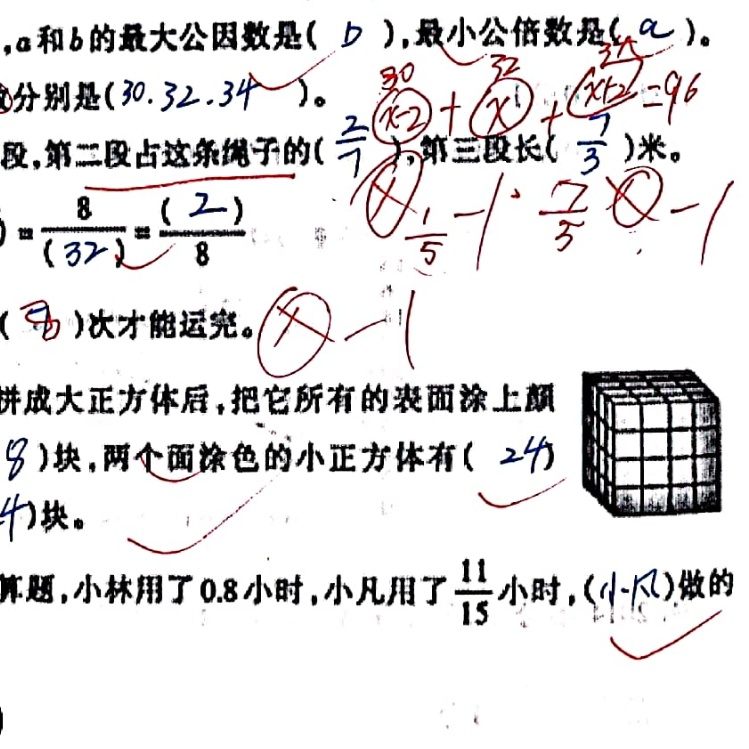 ,a和b的最大公因数是( b ),最小公倍数是( a )。
分别是(30.32.34 )。
30 32 34
(x-2)+(x)+(x+2)=96
段,第二段占这条绳子的( 2/7 ),第三段长( 7/3 )米。
1/5 -1 7/5 -1
)= 8/(32) = (2)/8
( )次才能运完。 -1
拼成大正方体后,把它所有的表面涂上颜
8 )块,两个面涂色的小正方体有( 24)
4)块。
算题,小林用了0.8小时,小凡用了11/15小时,(小凡)做的